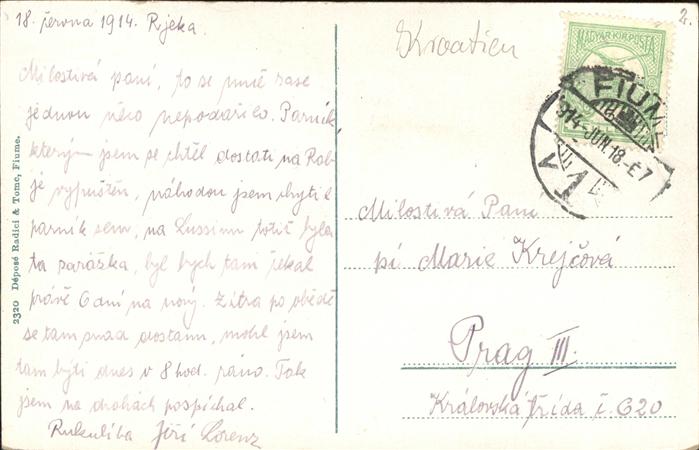 18. června 1914. Rjeka.
Milostivá paní, to se mně zase
jednou něco nepodařilo. Parník
kterým jsem se chtěl dostati na Rab
je vypuštěn, náhodou jsem chytil
parník sem, na Lussinu totiž byla
ta sarážka, byl bych tam čekal
právě 6 dní na nový. Zítra po obědě
se tam snad dostanu, mohl jsem
tam býti dnes v 8 hod. ráno. Tak
jsem na drahách pospíchal.
Rukulíbá Jiří Lorenz
2320 Déposé Radici & Tomc, Fiume.
Kroatien
2.
MAGYAR KIR. POSTA
FIUME
914-JUN.18.-E7
Milostivá Paní
pí Marie Krejčová
Prag III.
Královská třída č. 620